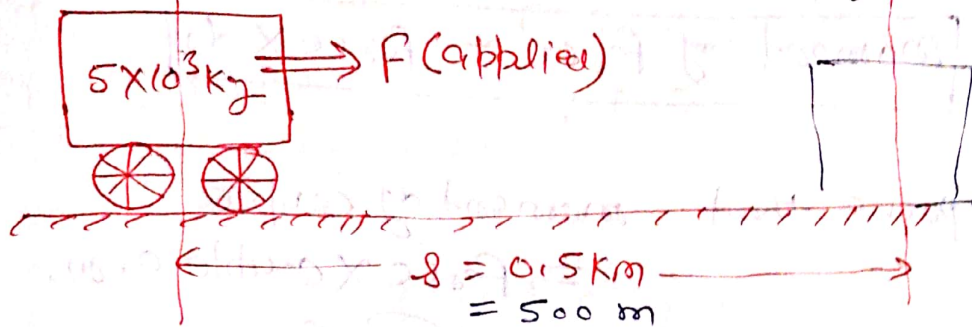 5×10³ Kg
F (applied)
s = 0.5 Km
= 500 m